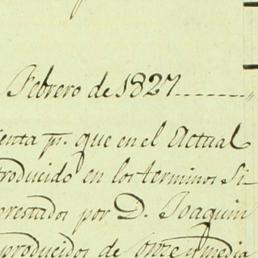 Febrero de 1827
enta pr. que en el Actual
roducido en los terminos Si-
prestados por D. Joaquin
producidos de once y media